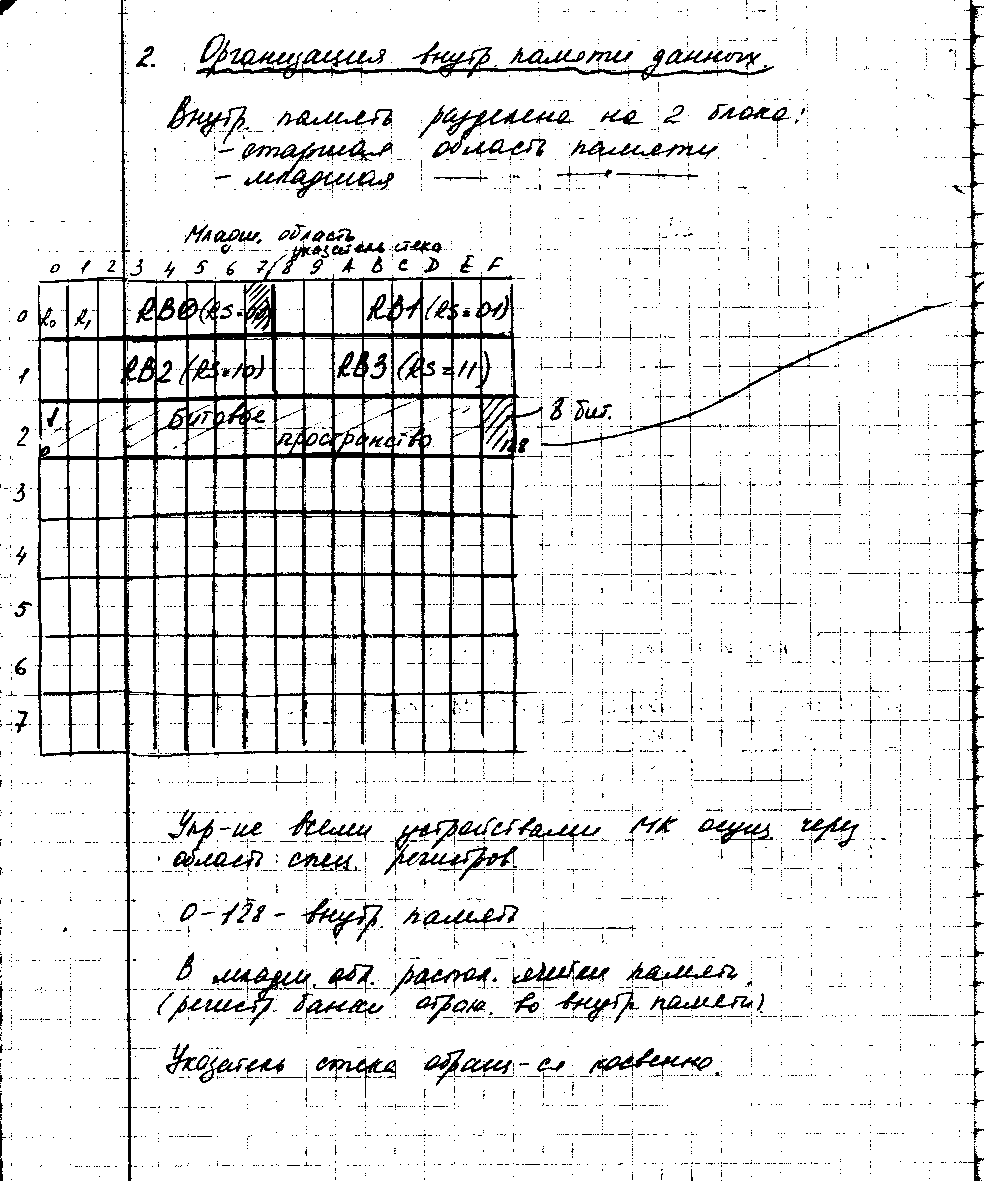 2. Организация внутр. памяти данных.
Внутр. память разделена на 2 блока:
- старшая область памяти
- младшая —— " ——
Младш. область
указатель стека
0 1 2 3 4 5 6 7 8 9 A B C D E F
0 R0 R1 RB0 (RS=00) RB1 (RS=01)
1 RB2 (RS=10) RB3 (RS=11)
1 Битовое 8 бит.
2 пространство 128
0
3
4
5
6
7
Упр-ие всеми устройствами МК осущ через
область спец. регистров
0-128 - внутр. память
В младш. обл. распол. ячейки память.
(регистр. банки отраж. во внутр памяти)
Указатель стека обращ-ся косвенно.